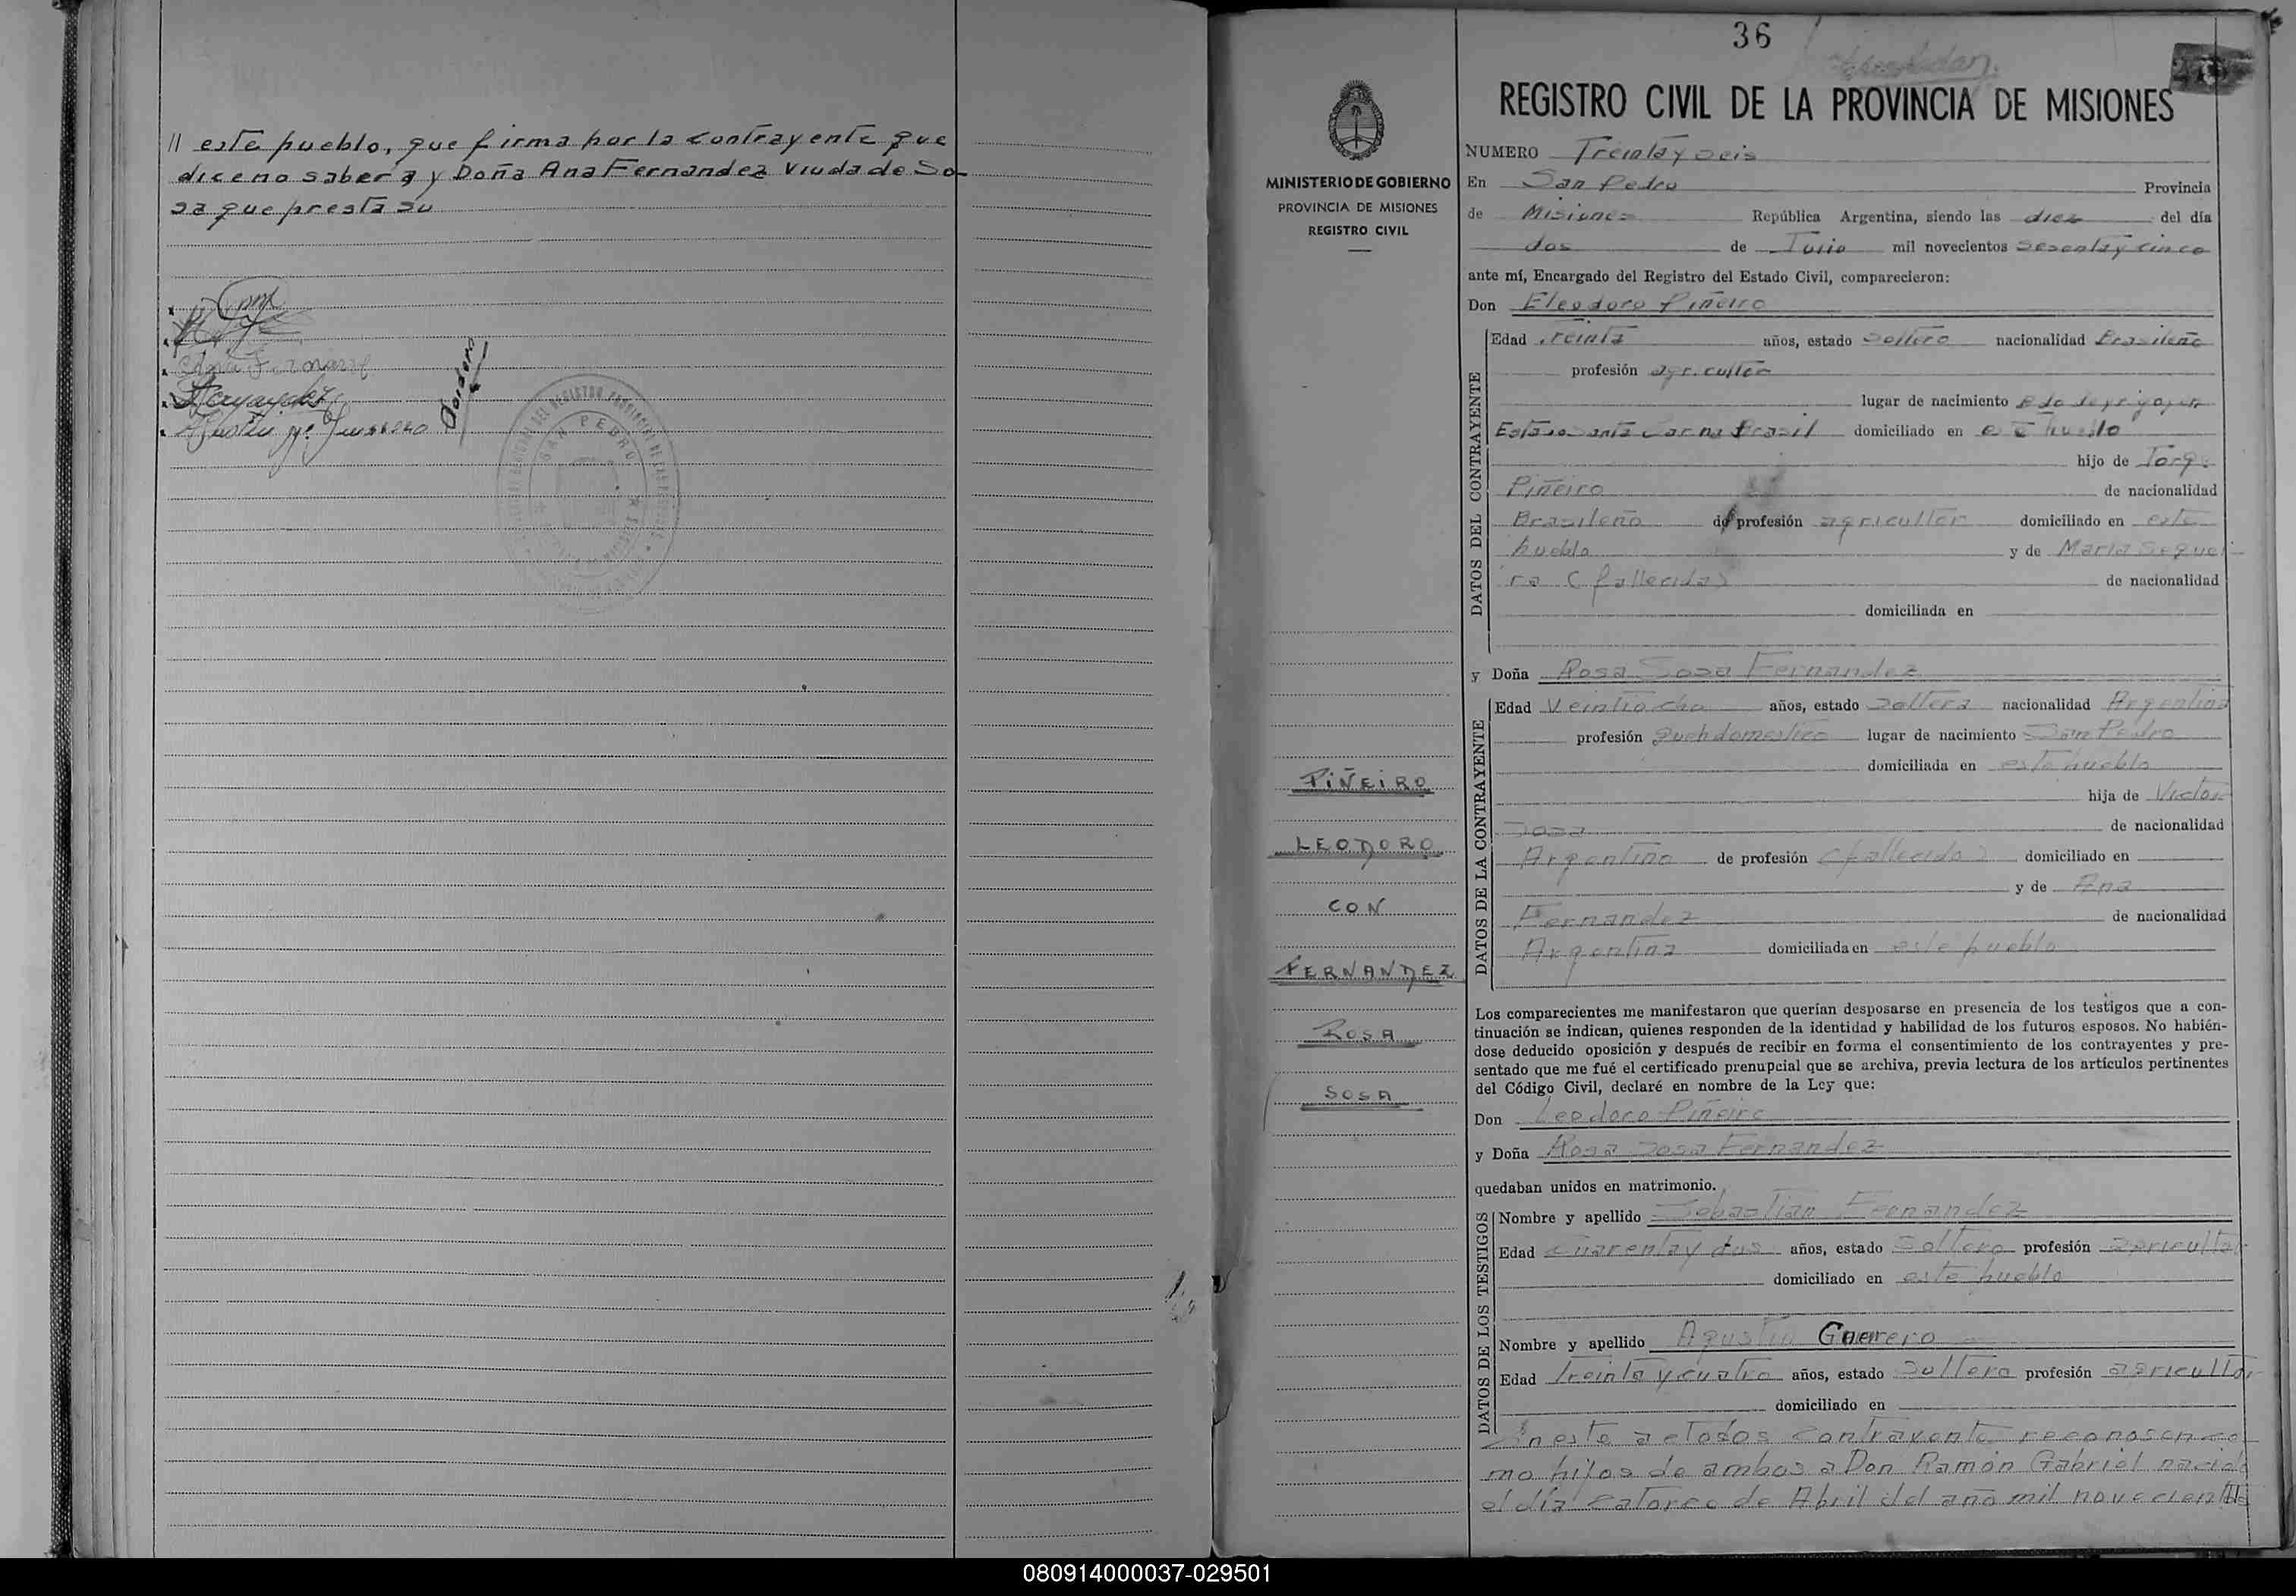 // este pueblo, que firma por la contrayente que
dice no saber y Doña Ana Fernandez Viuda de So-
sa que presta su
SAN PEDRO
36
REGISTRO CIVIL DE LA PROVINCIA DE MISIONES
MINISTERIO DE GOBIERNO
PROVINCIA DE MISIONES
REGISTRO CIVIL
PIÑEIRO
LEODORO
CON
FERNANDEZ
ROSA
SOSA
NUMERO Treinta y seis
En San Pedro Provincia
de Misiones República Argentina, siendo las diez del día
dos de Julio mil novecientos sesenta y cinco
ante mí, Encargado del Registro del Estado Civil, comparecieron:
Don Eleodoro Piñeiro
DATOS DEL CONTRAYENTE
Edad treinta años, estado soltero nacionalidad Brasileña
profesión agricultor
lugar de nacimiento
Estado Santa Brasil domiciliado en este pueblo
hijo de Jorge
Piñeiro de nacionalidad
Brasileña de profesión agricultor domiciliado en este
pueblo y de Maria Sequei-
ra (fallecida) de nacionalidad
domiciliada en
y Doña Rosa Sosa Fernandez
DATOS DE LA CONTRAYENTE
Edad Veintiocho años, estado soltera nacionalidad Argentina
profesión queh domestico lugar de nacimiento San Pedro
domiciliada en este pueblo
hija de Victor
Sosa de nacionalidad
Argentino de profesión (fallecido) domiciliado en
y de Ana
Fernandez de nacionalidad
Argentina domiciliada en este pueblo
Los comparecientes me manifestaron que querían desposarse en presencia de los testigos que a con-
tinuación se indican, quienes responden de la identidad y habilidad de los futuros esposos. No habién-
dose deducido oposición y después de recibir en forma el consentimiento de los contrayentes y pre-
sentado que me fué el certificado prenupcial que se archiva, previa lectura de los artículos pertinentes
del Código Civil, declaré en nombre de la Ley que:
Don Leodoro Piñeiro
y Doña Rosa Sosa Fernandez
quedaban unidos en matrimonio.
DATOS DE LOS TESTIGOS
Nombre y apellido Sebastian Fernandez
Edad Cuarenta y dos años, estado soltero profesión agricultor
domiciliado en este pueblo
Nombre y apellido Agustin Guerrero
Edad treinta y cuatro años, estado soltero profesión agricultor
domiciliado en
En este acto los contrayente reconosen co-
mo hijos de ambos a Don Ramón Gabriel nacido
el día catorce de Abril del año mil novecientos
080914000037-029501